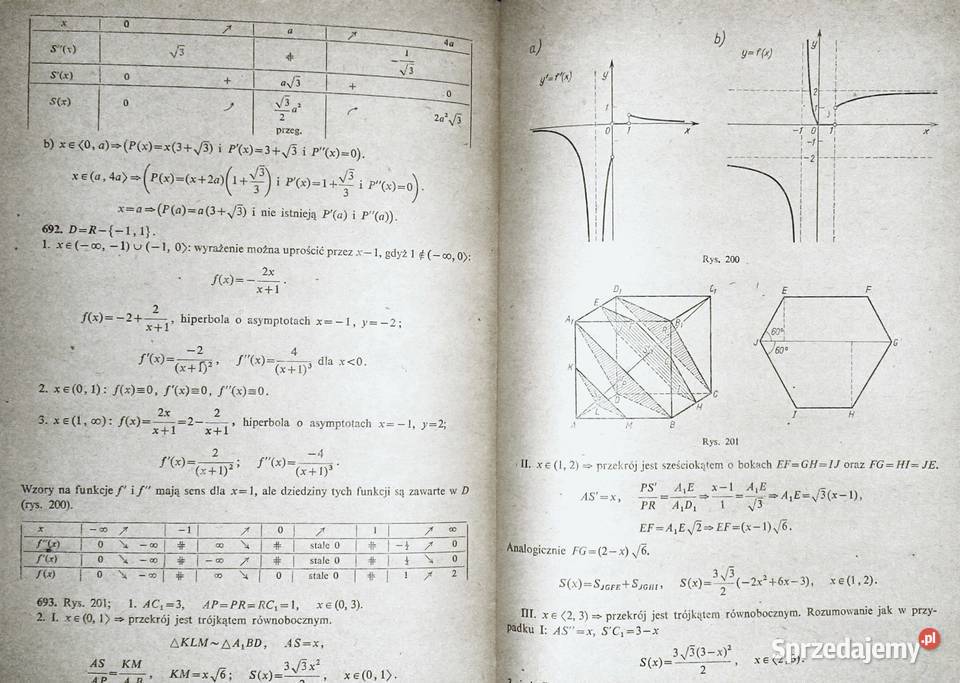 x 0 ↗ a ↗ 4a
S''(x) √3 ⋕ −1/√3
S'(x) 0 + a√3 + 0
S(x) 0 √3/2 a² 2a²√3
przeg.
b) x∈⟨0, a)⇒(P(x)=x(3+√3) i P'(x)=3+√3 i P''(x)=0).
x∈(a, 4a⟩⇒(P(x)=(x+2a)(1+√3/3) i P'(x)=1+√3/3 i P''(x)=0).
x=a⇒(P(a)=a(3+√3) i nie istnieją P'(a) i P''(a)).
692. D=R−{−1, 1}.
1. x∈(−∞, −1)∪(−1, 0⟩: wyrażenie można uprościć przez x−1, gdyż 1∉(−∞,0⟩:
f(x)=−2x/x+1.
f(x)=−2+2/x+1, hiperbola o asymptotach x=−1, y=−2;
f'(x)=−2/(x+1)², f''(x)=4/(x+1)³ dla x<0.
2. x∈(0, 1): f(x)≡0, f'(x)≡0, f''(x)≡0.
3. x∈(1, ∞): f(x)=2x/x+1=2−2/x+1, hiperbola o asymptotach x=−1, y=2;
f'(x)=2/(x+1)²; f''(x)=−4/(x+1)³.
Wzory na funkcje f' i f'' mają sens dla x=1, ale dziedziny tych funkcji są zawarte w D
(rys. 200).
x −∞ ↗ −1 ↗ 0 ↗ 1 ↗ ∞
f''(x) 0 ↘ −∞ ⋕ ∞ ↘ ⋕ stale 0 ⋕ −½ ↗ 0
f'(x) 0 ↘ −∞ ⋕ −∞ ↗ ⋕ stale 0 ⋕ ½ ↘ 0
f(x) 0 ↘ −∞ ⋕ ∞ ↘ 0 stale 0 ⋕ 1 ↗ 2
693. Rys. 201; 1. AC₁=3, AP=PR=RC₁=1, x∈(0, 3).
2. I. x∈(0, 1⟩ ⇒ przekrój jest trójkątem równobocznym.
△KLM∼△A₁BD, AS=x,
AS/AP=KM/A₁B, KM=x√6; S(x)=3√3x²/2, x∈(0, 1⟩.
a) b)
y=f'(x) y y=f(x) y
1 2
0 1 x −1 0 1 x
1
−1
−2
Rys. 200
D₁ C₁ E F
E
A₁ B₁
R
60°
J G
60°
K S'
P
D C
S H
A L M B I H
Rys. 201
II. x∈(1, 2) ⇒ przekrój jest sześciokątem o bokach EF=GH=IJ oraz FG=HI=JE.
AS'=x, PS'/PR=A₁E/A₁D₁⇒x−1/1=A₁E/√3⇒A₁E=√3(x−1),
EF=A₁E√2⇒EF=(x−1)√6.
Analogicznie FG=(2−x)√6.
S(x)=S_JGFE+S_JGHI, S(x)=3√3/2(−2x²+6x−3), x∈(1, 2).
III. x∈⟨2, 3) ⇒ przekrój jest trójkątem równobocznym. Rozumowanie jak w przy-
padku I: AS''=x, S''C₁=3−x
S(x)=3√3(3−x)²/2, x∈⟨2, 3).
Sprzedajemy.pl